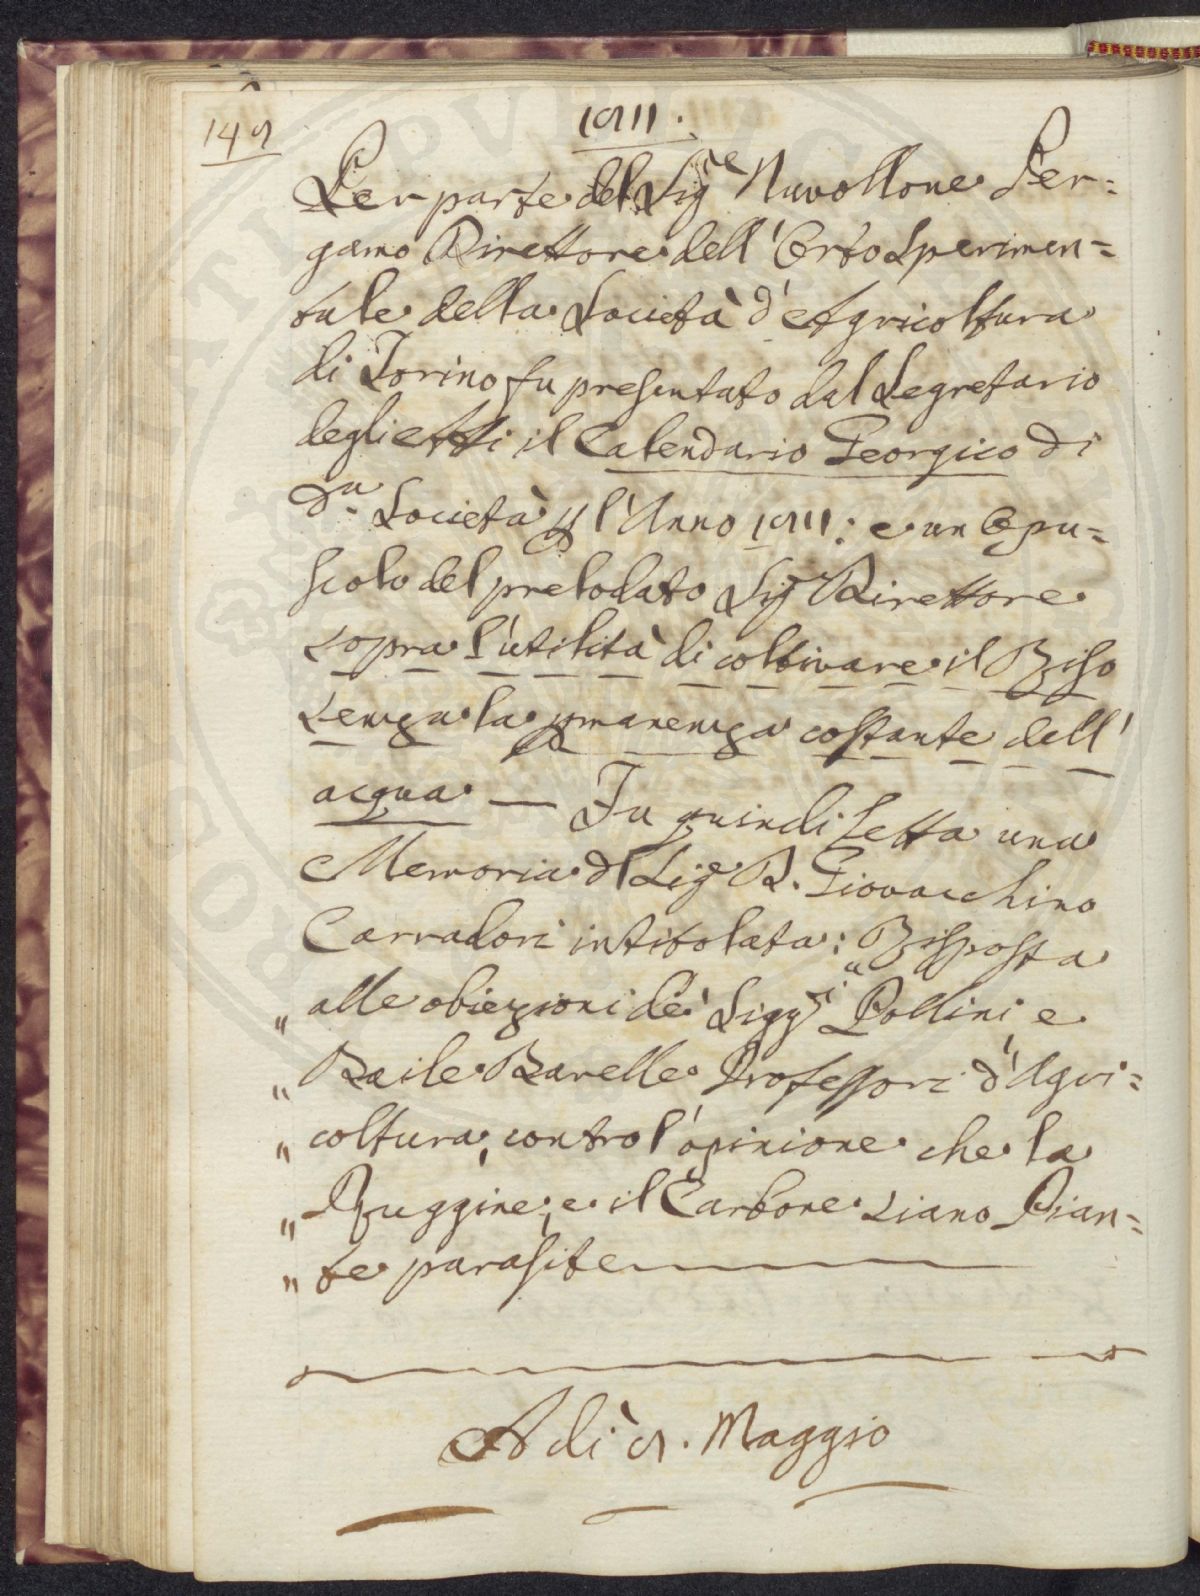 148
1811.
Per parte del Sig.re Nuvollone Per=
gamo Direttore dell'Orto Sperimen=
tale della Società d'Agricoltura
di Torino fu presentato dal Segretario
degli Atti il Calendario Georgico di
d.a Società p l'Anno 1811: e un Opu=
scolo del prelodato Sig.e Direttore
sopra l'utilità di coltivare il Riso
senza la pmanenza costante dell'
acqua — Fu quindi letta una
Memoria d Sig.e D. Giovacchino
Carradori intitolata: „Risposta
„ alle obiezioni de' Sigg.i Pollini, e
„ Baile Barelle Professori d'Agri=
„ coltura, contro l'opinione che la
„ Ruggine, e il Carbone siano Pian=
„ te parasite
A dì 8. Maggio